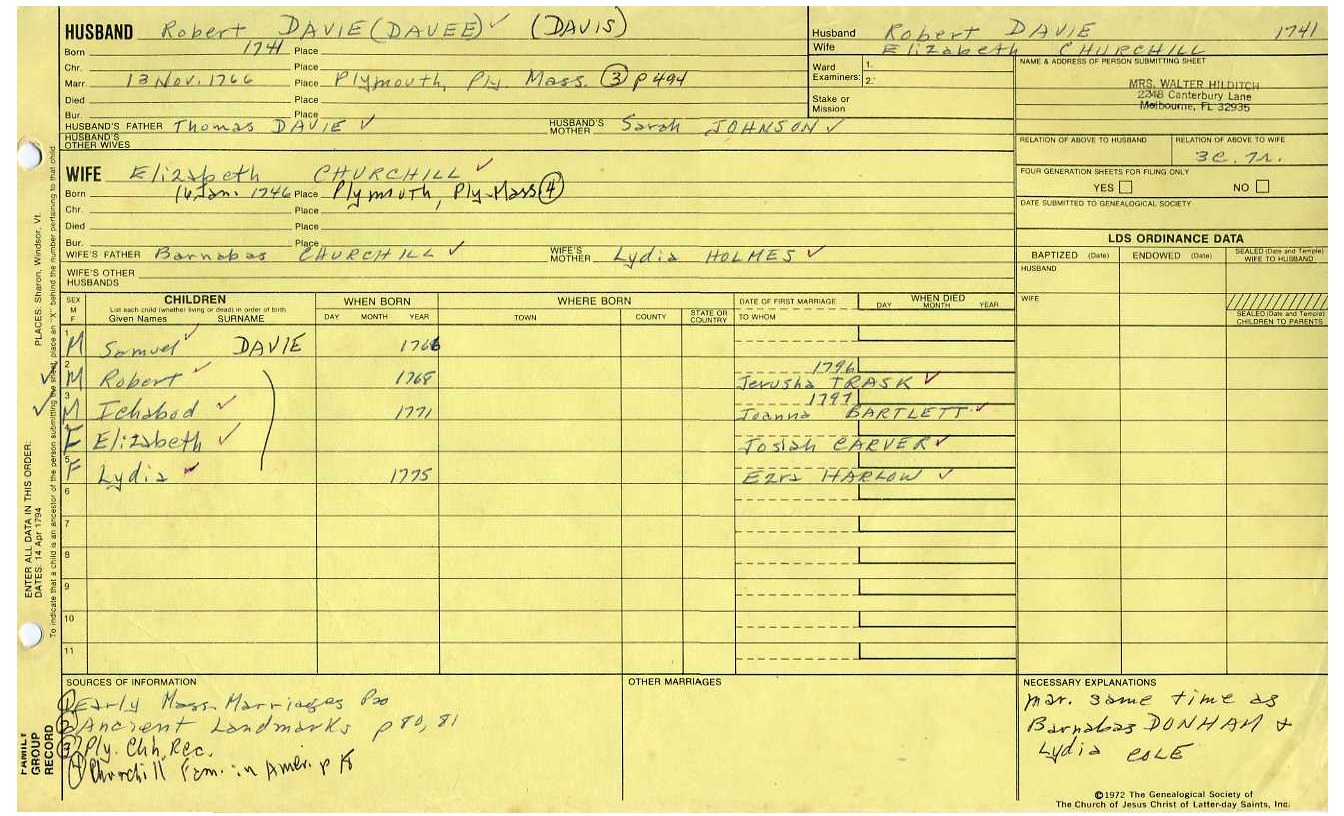 HUSBAND Robert DAVIE (DAVEE) ✓ (DAVIS)
Born 1741 Place
Chr. Place
Marr. 13 Nov. 1766 Place Plymouth, Ply. Mass. (3) p 494
Died Place
Bur. Place
HUSBAND'S FATHER Thomas DAVIE ✓ HUSBAND'S MOTHER Sarah JOHNSON ✓
HUSBAND'S OTHER WIVES
Husband Robert DAVIE 1741
Wife Elizabeth CHURCHILL
Ward Examiners: 1. 2.
Stake or Mission
NAME & ADDRESS OF PERSON SUBMITTING SHEET
MRS. WALTER HILDITCH
2348 Canterbury Lane
Melbourne, FL 32935
RELATION OF ABOVE TO HUSBAND RELATION OF ABOVE TO WIFE
3C. 7r.
FOUR GENERATION SHEETS FOR FILING ONLY
YES NO
DATE SUBMITTED TO GENEALOGICAL SOCIETY
WIFE Elizabeth CHURCHILL ✓
Born 16 Jan. 1746 Place Plymouth, Ply-Mass (4)
Chr. Place
Died Place
Bur. Place
WIFE'S FATHER Barnabas CHURCHILL ✓ WIFE'S MOTHER Lydia HOLMES ✓
WIFE'S OTHER HUSBANDS
LDS ORDINANCE DATA
BAPTIZED (Date) ENDOWED (Date) SEALED (Date and Temple) WIFE TO HUSBAND
HUSBAND
WIFE
SEALED (Date and Temple) CHILDREN TO PARENTS
SEX M F CHILDREN WHEN BORN WHERE BORN DATE OF FIRST MARRIAGE WHEN DIED
List each child (whether living or dead) in order of birth
Given Names SURNAME DAY MONTH YEAR TOWN COUNTY STATE OR COUNTRY TO WHOM DAY MONTH YEAR
1 M Samuel ✓ DAVIE 1766
2 ✓ M Robert ✓ 1768 1796 Jerusha TRASK ✓
3 ✓ M Ichabod ✓ 1771 1797 Joanna BARTLETT ✓
F Elizabeth ✓ Josiah CARVER ✓
5 F Lydia ✓ 1775 Ezra HARLOW ✓
6
7
8
9
10
11
SOURCES OF INFORMATION
(1) Early Mass. Marriages
(2) Ancient Landmarks p 80, 81
(3) Ply. Chh. Rec.
(4) Churchill Fam. in Amer. p
OTHER MARRIAGES
NECESSARY EXPLANATIONS
mar. same time as
Barnabas DONHAM &
Lydia COLE
©1972 The Genealogical Society of
The Church of Jesus Christ of Latter-day Saints, Inc.
FAMILY GROUP RECORD
ENTER ALL DATA IN THIS ORDER:
DATES: 14 Apr 1794
PLACES: Sharon, Windsor, Vt.
To indicate that a child is an ancestor of the person submitting the sheet, place an "X" behind the number pertaining to that child.